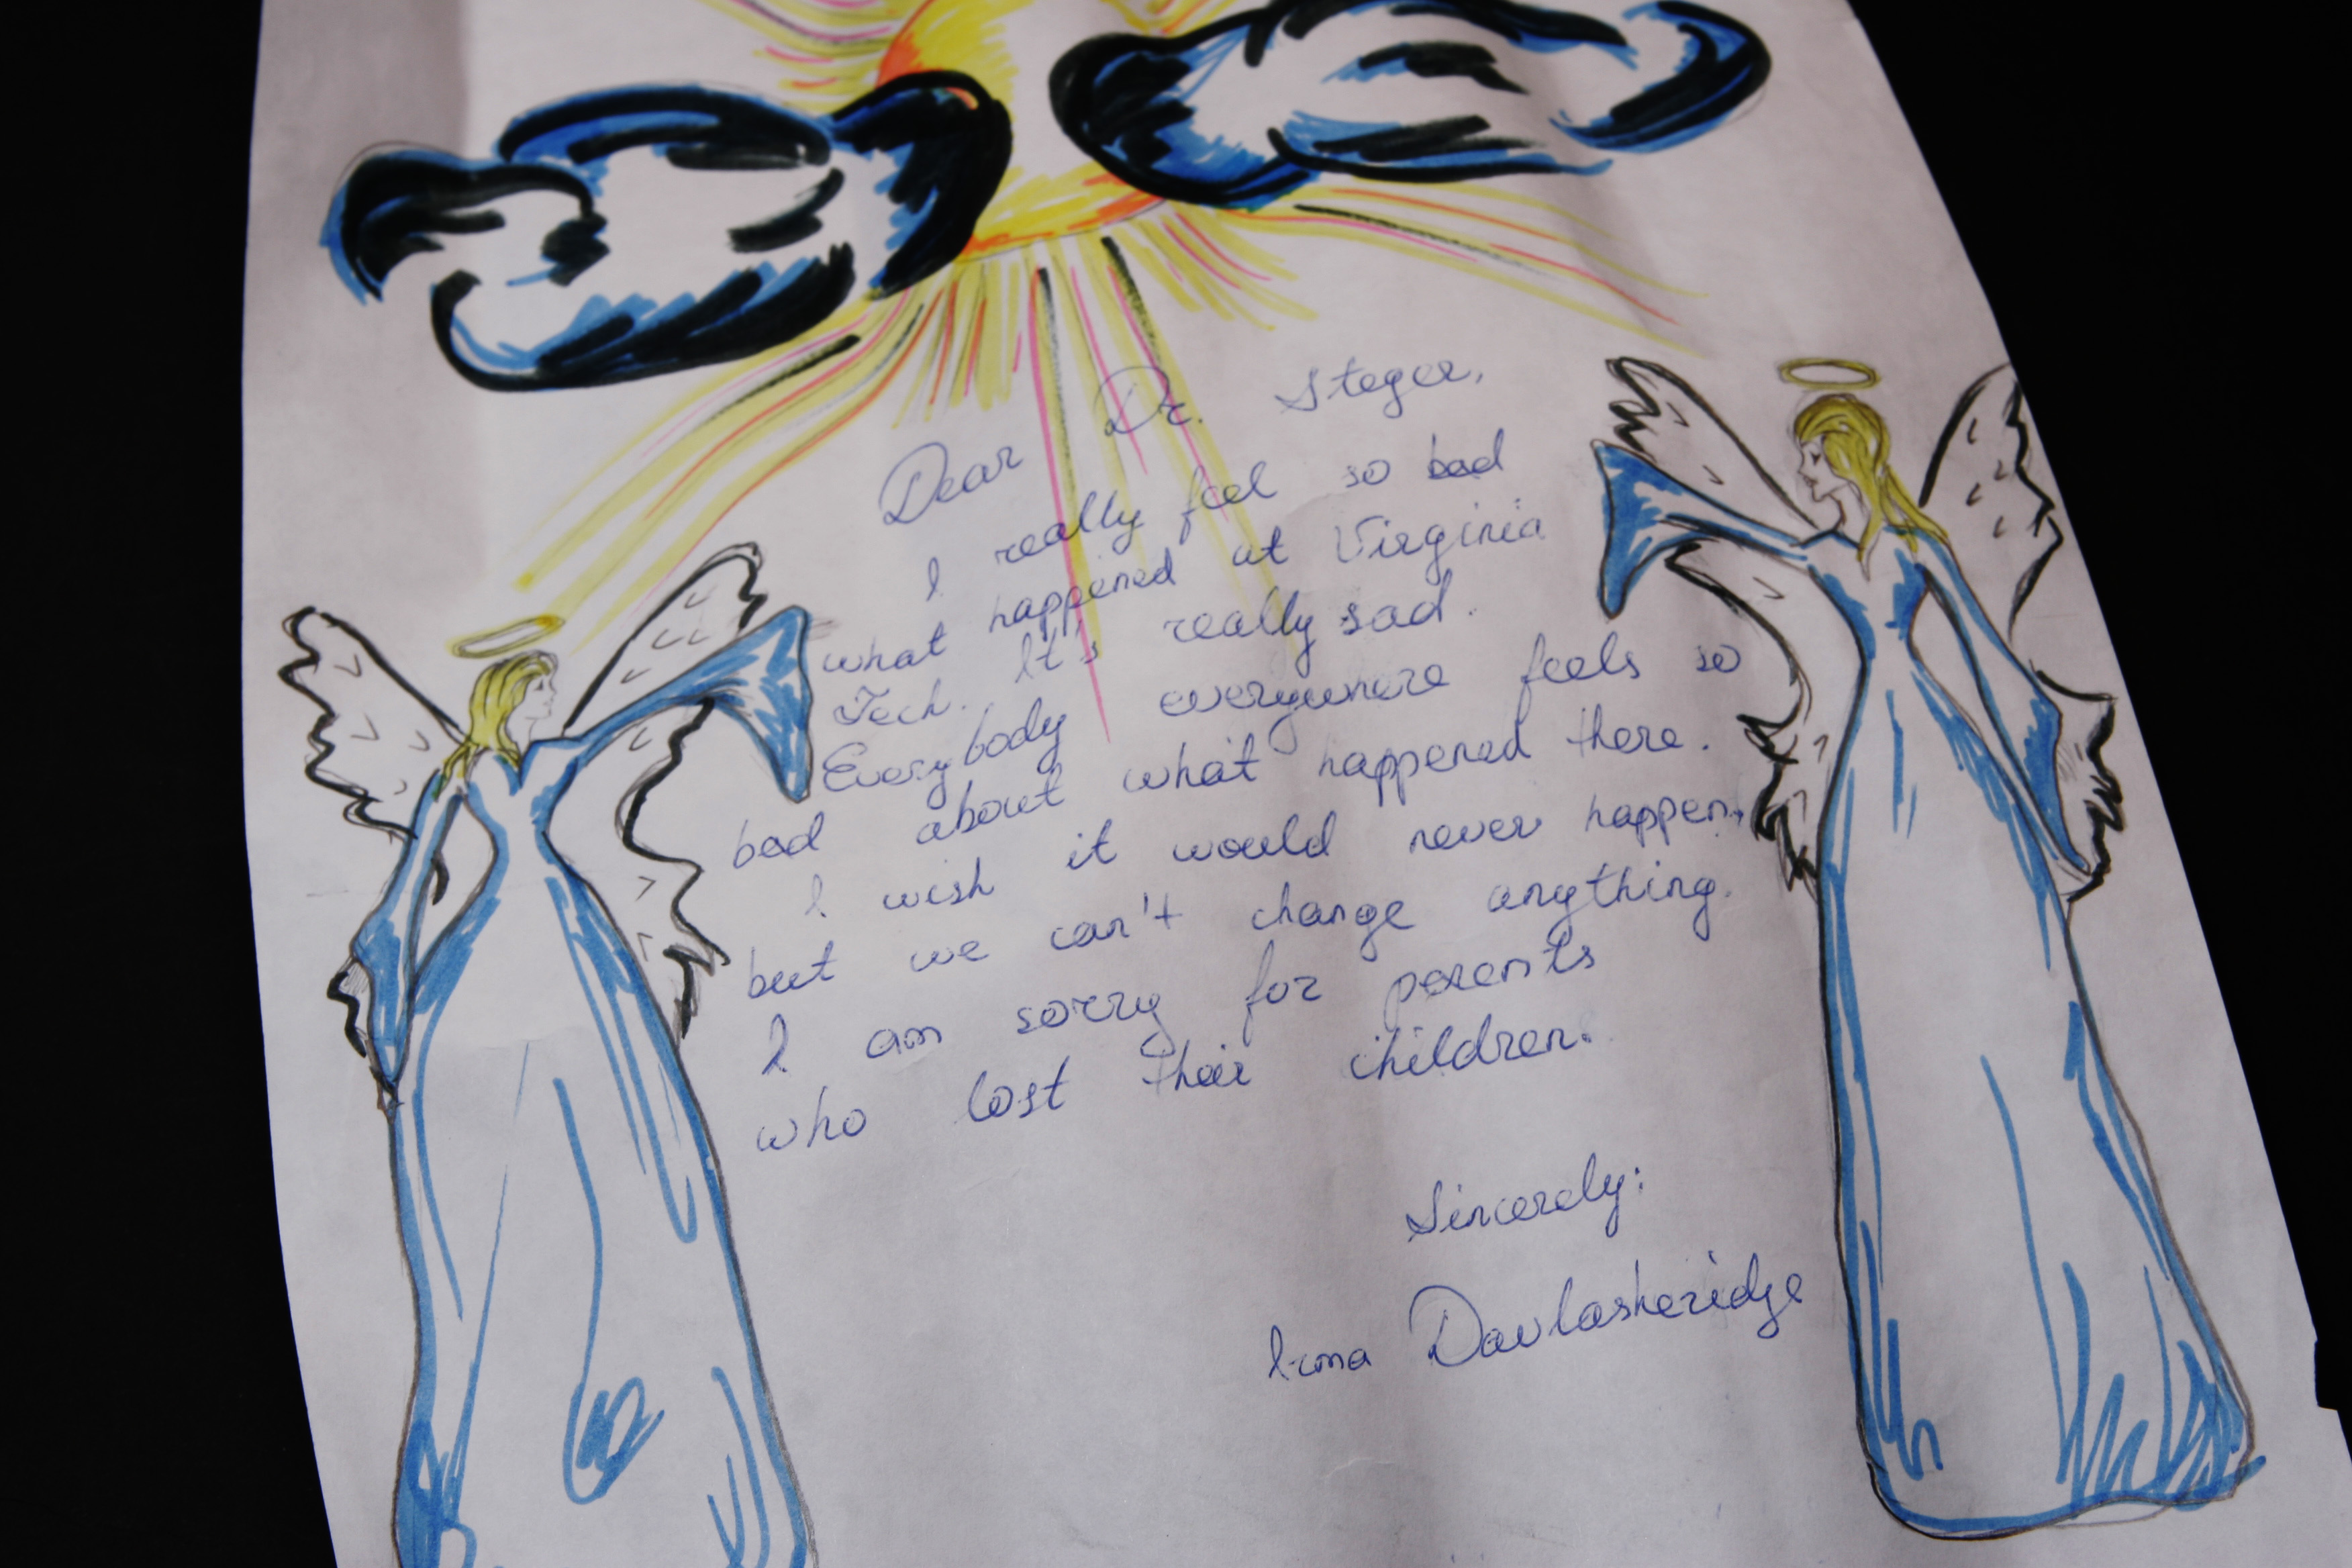 Dear Dr. Steger,
I really feel so bad
what happened at Virginia
Tech. It's really sad.
Everybody everywhere feels so
bad about what happened there.
I wish it would never happen,
but we can't change anything.
I am sorry for parents
who lost their children.
Sincerely:
Irma Davlasheridze